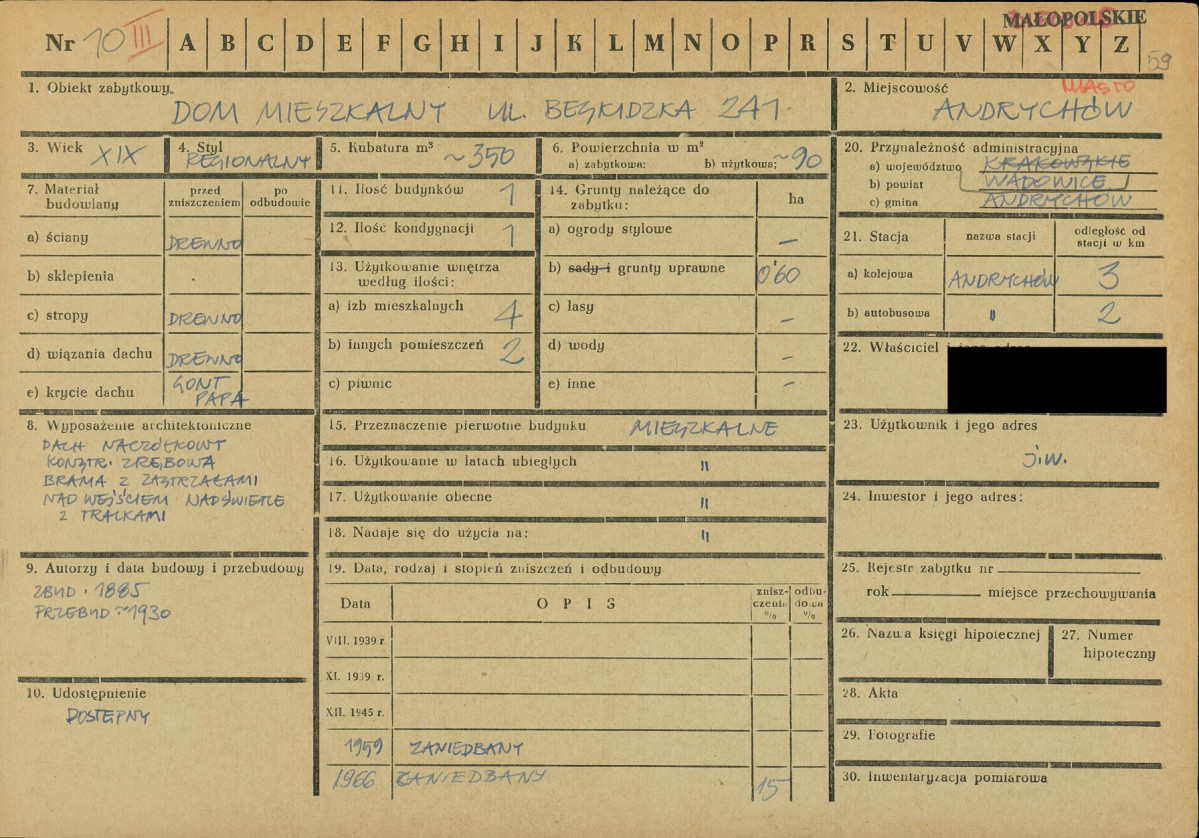 Nr 10 III A B C D E F G H I J K L M N O P R S T U V W X Y Z
MAŁOPOLSKIE
59
1. Obiekt zabytkowy
DOM MIESZKALNY UL. BESKIDZKA 241
2. Miejscowość
MIASTO
ANDRYCHÓW
3. Wiek XIX
4. Styl
REGIONALNY
5. Kubatura m³ ~350
6. Powierzchnia w m²
a) zabytkowa: b) użytkowa: ~90
20. Przynależność administracyjna
a) województwo KRAKOWSKIE
b) powiat WADOWICE
c) gmina ANDRYCHÓW
7. Materiał budowlany
przed zniszczeniem
po odbudowie
a) ściany DREWNO
b) sklepienia -
c) stropy DREWNO
d) wiązania dachu DREWNO
e) krycie dachu GONT
PAPA
11. Ilość budynków 1
12. Ilość kondygnacji 1
13. Użytkowanie wnętrza
według ilości:
a) izb mieszkalnych 4
b) innych pomieszczeń 2
c) piwnic
14. Grunty należące do
zabytku:
ha
a) ogrody stylowe –
b) sady i grunty uprawne 0'60
c) lasy –
d) wody –
e) inne –
21. Stacja
nazwa stacji
odległość od
stacji w km
a) kolejowa ANDRYCHÓW 3
b) autobusowa " 2
22. Właściciel i jego adres
8. Wyposażenie architektoniczne
DACH NACZÓŁKOWY
KONSTR. ZRĘBOWA
BRAMA Z ZASTRZAŁAMI
NAD WEJŚCIEM NADŚWIETLE
Z TRALKAMI
15. Przeznaczenie pierwotne budynku MIESZKALNE
16. Użytkowanie w latach ubiegłych "
17. Użytkowanie obecne "
18. Nadaje się do użycia na: "
23. Użytkownik i jego adres
j.w.
24. Inwestor i jego adres:
9. Autorzy i data budowy i przebudowy
ZBUD. 1885
PRZEBUD ~1930
19. Data, rodzaj i stopień zniszczeń i odbudowy
Data
OPIS
znisz-
czenia
%
odbu-
dowa
%
VIII. 1939 r.
XI. 1939 r.
XII. 1945 r.
1959 ZANIEDBANY
1966 ZANIEDBANY 15
25. Rejestr zabytku nr
rok miejsce przechowywania
26. Nazwa księgi hipotecznej
27. Numer
hipoteczny
10. Udostępnienie
DOSTĘPNY
28. Akta
29. Fotografie
30. Inwentaryzacja pomiarowa